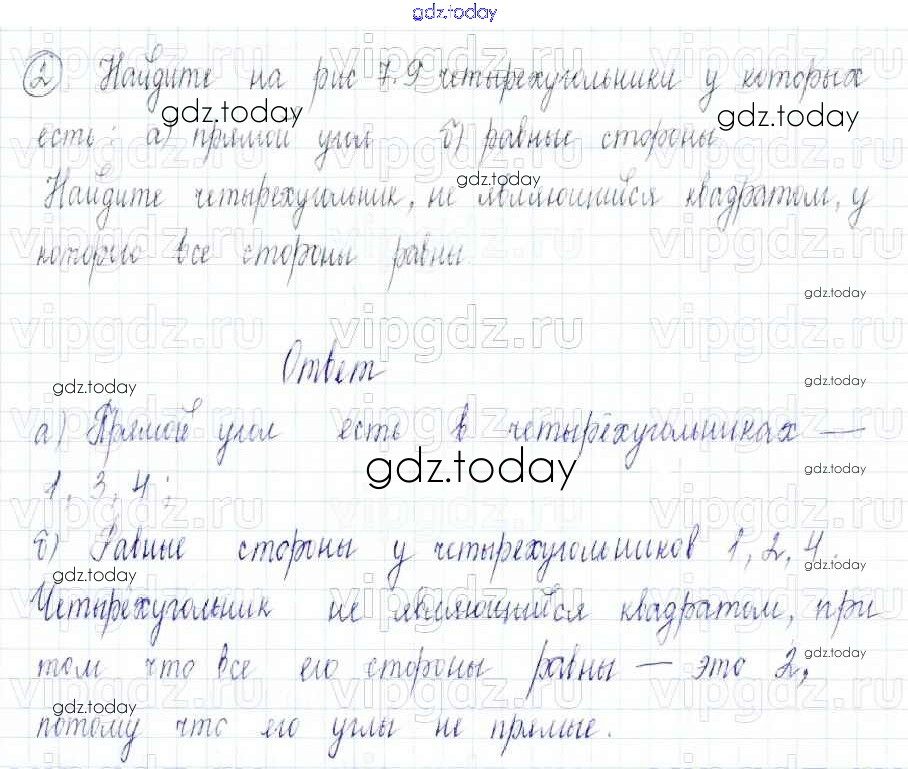 gdz.today
2 Найдите на рис 7.9 четырехугольники у которых
gdz.today gdz.today
есть: а) прямой угол б) равные стороны
gdz.today
Найдите четырехугольник, не являющийся квадратом, у
которого все стороны равны
gdz.today
vipgdz.ru vipgdz.ru vipgdz.ru
Ответ
gdz.today gdz.today
а) Прямой угол есть в четырёхугольниках —
gdz.today gdz.today
1, 3, 4;
б) Равные стороны у четырехугольников 1, 2, 4.
gdz.today gdz.today
Четырёхугольник не являющийся квадратом, при
том что все его стороны равны — это 2,
gdz.today
gdz.today
потому что его углы не прямые.